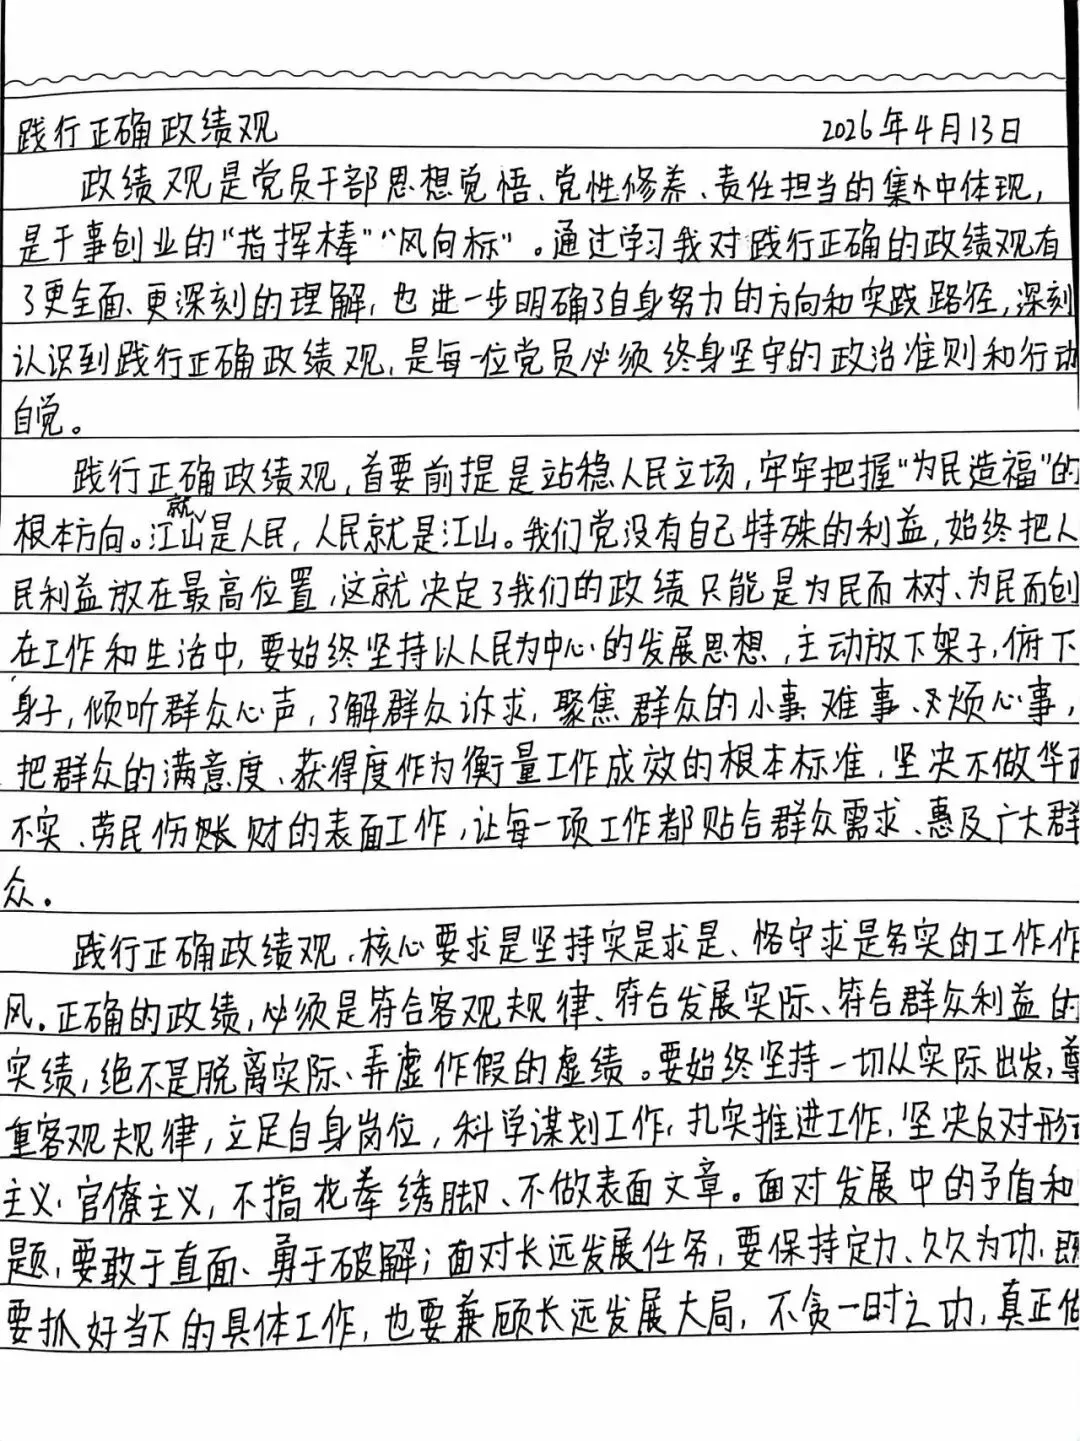 践行正确政绩观 2026年4月13日
政绩观是党员干部思想觉悟、党性修养、责任担当的集中体现,
是干事创业的“指挥棒”“风向标”。通过学习我对践行正确的政绩观有
了更全面、更深刻的理解,也进一步明确了自身努力的方向和实践路径,深刻
认识到践行正确政绩观,是每一位党员必须终身坚守的政治准则和行动
自觉。
践行正确政绩观,首要前提是站稳人民立场,牢牢把握“为民造福”的
根本方向。江山就是人民,人民就是江山。我们党没有自己特殊的利益,始终把人
民利益放在最高位置,这就决定了我们的政绩只能是为民而树、为民而创
在工作和生活中,要始终坚持以人民为中心的发展思想,主动放下架子,俯下
身子,倾听群众心声,了解群众诉求,聚焦群众的小事、难事、烦心事,
把群众的满意度、获得度作为衡量工作成效的根本标准,坚决不做华而
不实、劳民伤财的表面工作,让每一项工作都贴合群众需求、惠及广大群
众。
践行正确政绩观,核心要求是坚持实是求是、恪守求是务实的工作作
风。正确的政绩,必须是符合客观规律、符合发展实际、符合群众利益的
实绩,绝不是脱离实际、弄虚作假的虚绩。要始终坚持一切从实际出发,尊
重客观规律,立足自身岗位,科学谋划工作,扎实推进工作,坚决反对形
主义、官僚主义,不搞花拳绣脚、不做表面文章。面对发展中的矛盾和
题,要敢于直面、勇于破解;面对长远发展任务,要保持定力、久久为功,既
要抓好当下的具体工作,也要兼顾长远发展大局,不贪一时之功,真正做